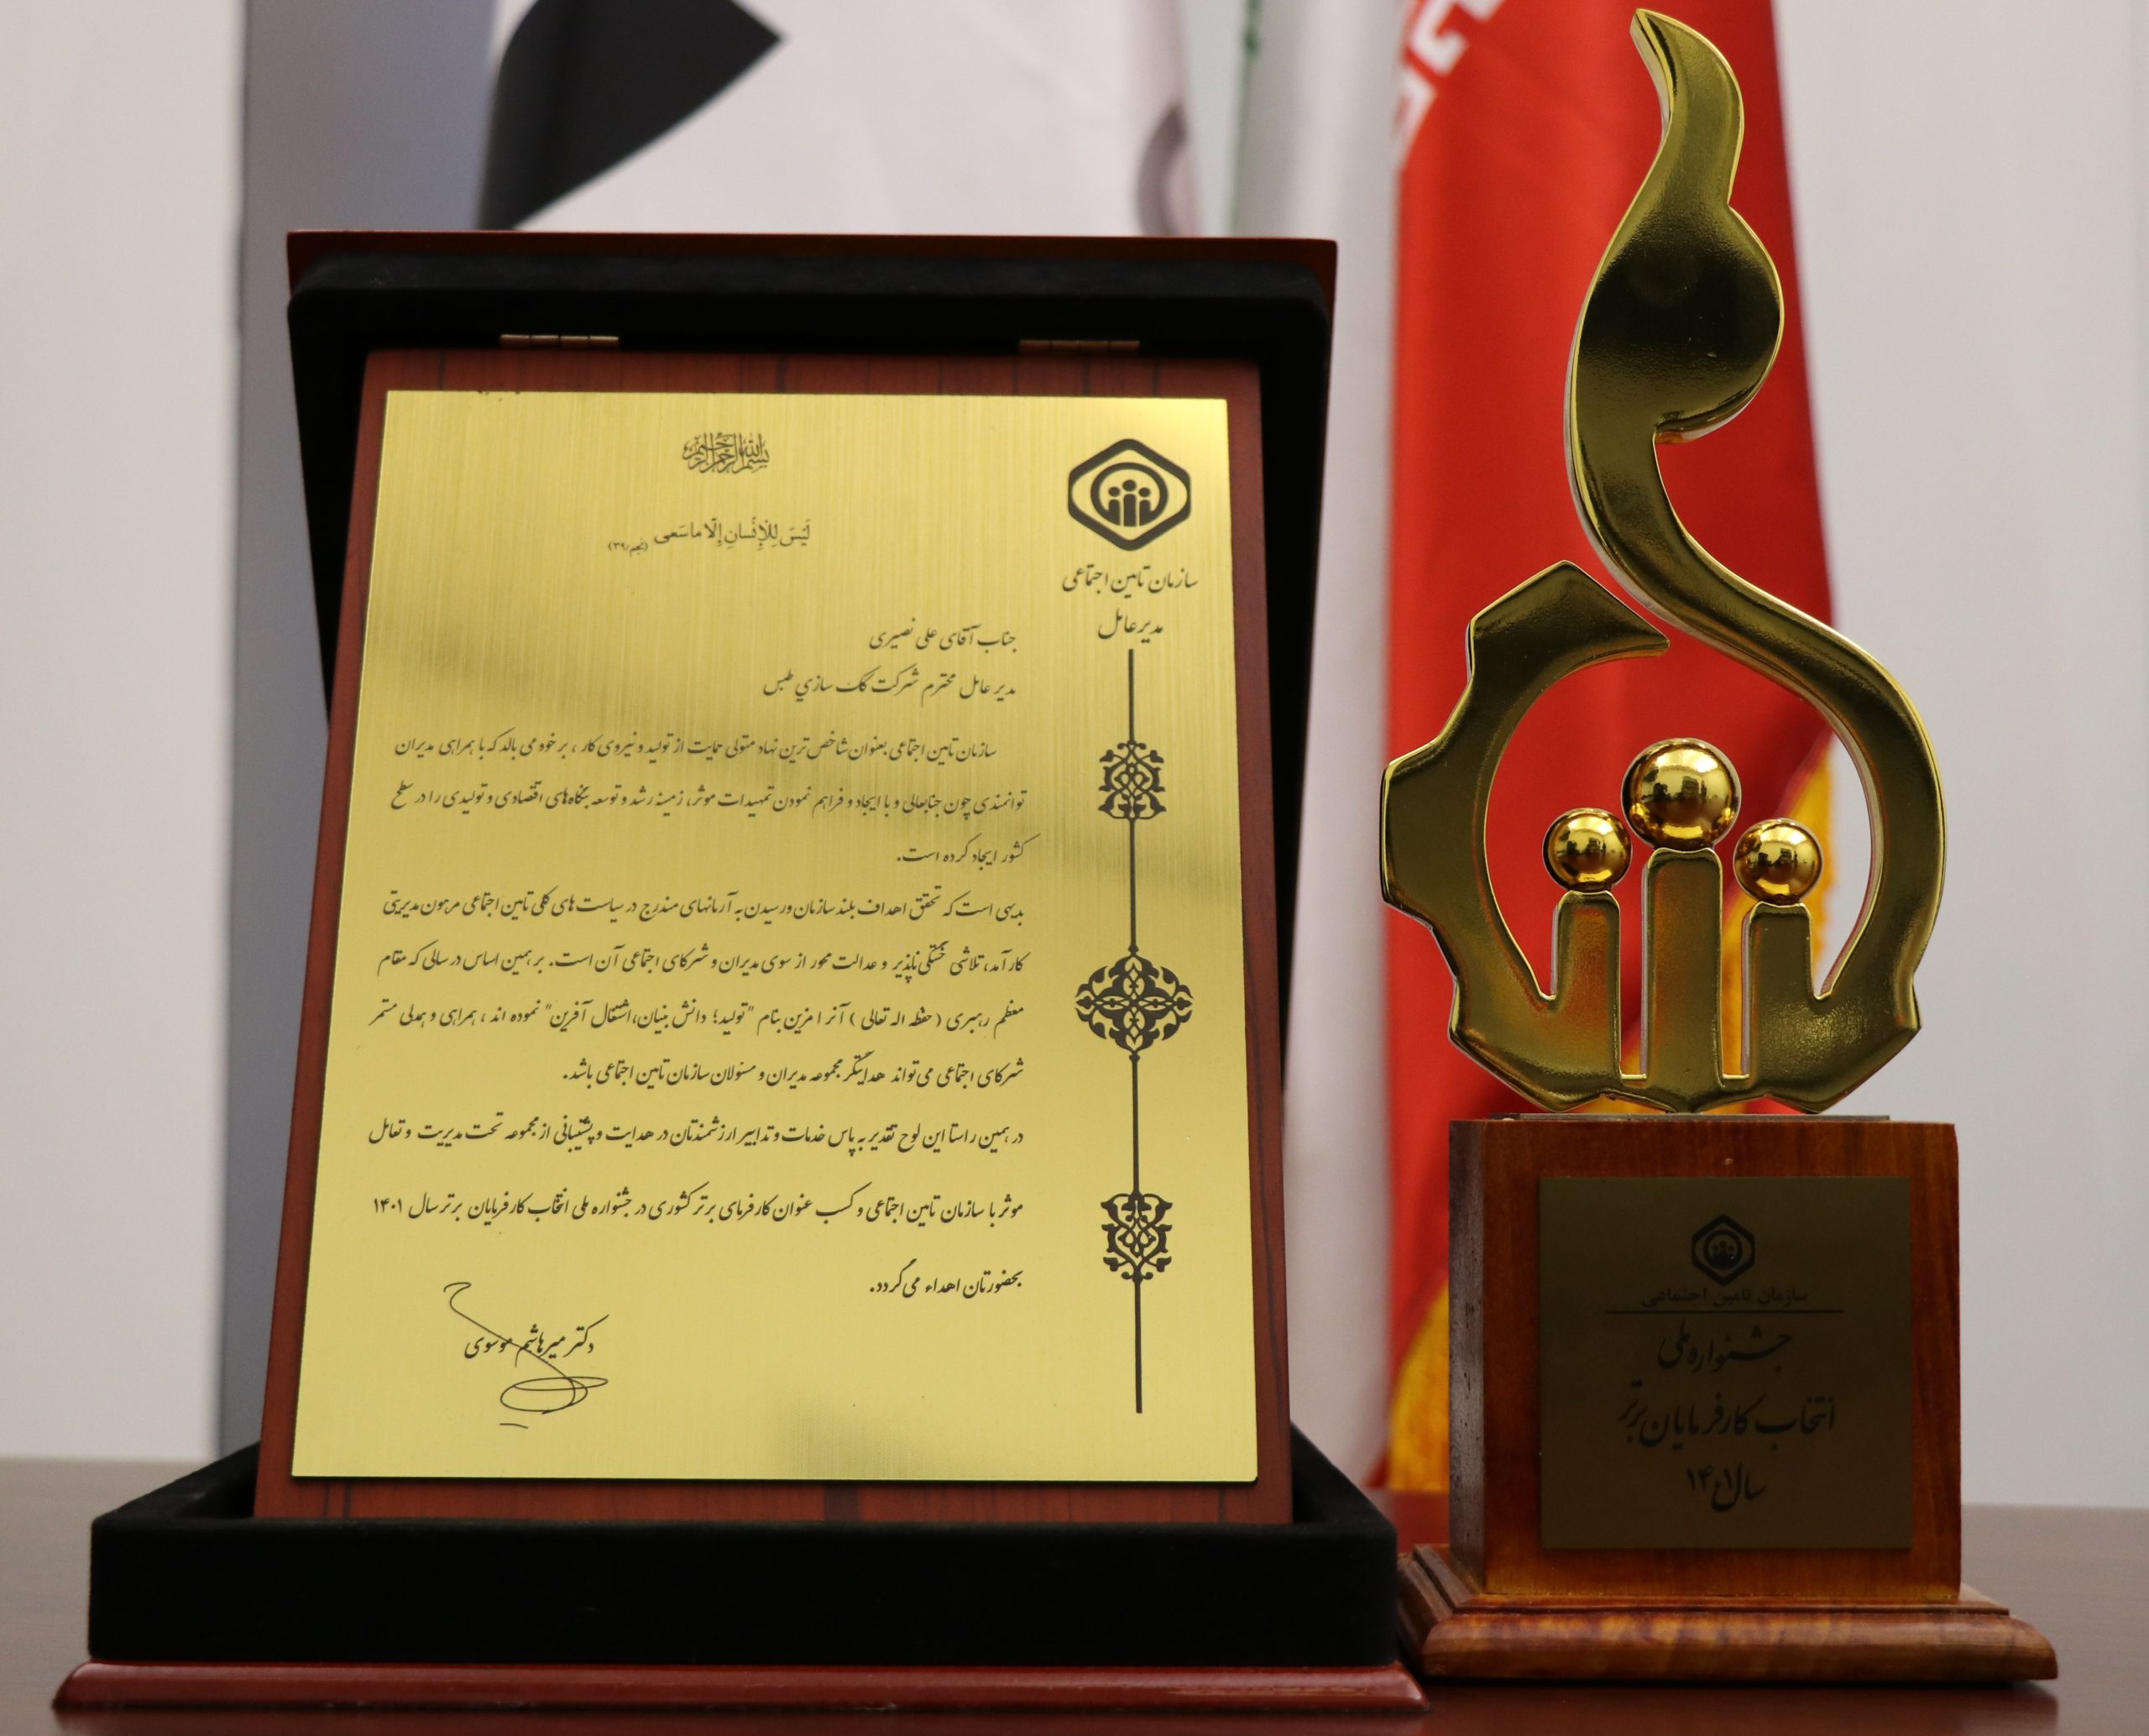 بسم الله الرحمن الرحیم
لَیْسَ لِلْإِنْسانِ إِلّا ما سَعی (نجم/۳۹)
سازمان تامین اجتماعی
مدیرعامل
جناب آقای علی نصیری
مدیر عامل محترم شرکت کک سازي طبس
سازمان تامین اجتماعی بعنوان شاخص ترین نهاد متولی حمایت از تولید و نیروی کار ، بر خود می بالد که با همراهی مدیران
توانمندی چون جنابعالی و با ایجاد و فراهم نمودن تمهیدات موثر، زمینه رشد و توسعه بنگاه های اقتصادی و تولیدی را در سطح
کشور ایجاد کرده است.
بدیهی است که تحقق اهداف بلند سازمان و رسیدن به آرمانهای مندرج در سیاست های کلی تامین اجتماعی مرهون مدیریتی
کارآمد، تلاشی خستگی ناپذیر و عدالت محور از سوی مدیران و شرکای اجتماعی آن است. بر همین اساس در سالی که مقام
معظم رهبری (حفظه اله تعالی) آنرا مزین بنام "تولید؛ دانش بنیان، اشتغال آفرین" نموده اند ، همراهی و همدلی مستمر
شرکای اجتماعی می تواند هدایتگر مجموعه مدیران و مسئولان سازمان تامین اجتماعی باشد.
در همین راستا این لوح تقدیر به پاس خدمات و تدابیر ارزشمندتان در هدایت و پشتیبانی از مجموعه تحت مدیریت و تعامل
موثر با سازمان تامین اجتماعی و کسب عنوان کارفرمای برتر کشوری در جشنواره ملی انتخاب کارفرمایان برتر سال ۱۴۰۱
بحضورتان اهداء می گردد.
دکتر میرهاشم موسوی
سازمان تامین اجتماعی
جشنواره ملی
انتخاب کارفرمایان برتر
سال ۱۴۰۱